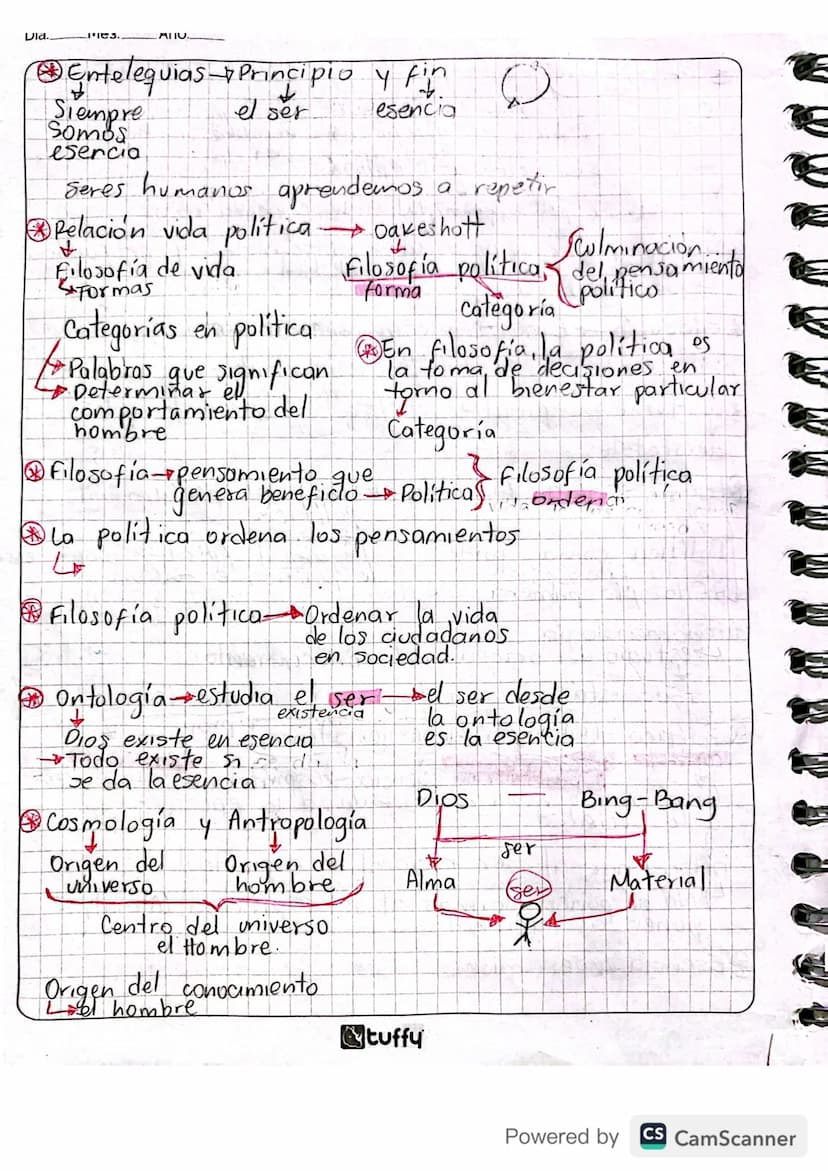 Día. Mes. Año
Entelequias → Principio y fin
Siempre somos esencia
el ser
esencia
seres humanos aprendemos a repetir
Relación vida política → Oakeshott
Filosofía de vida
↳ Formas
Filosofía política
forma
Categoría
Culminación
del pensamiento
político
Categorías en política
→ Palabras que significan
→ Determinar el
comportamiento del
hombre
En filosofía, la política es
la toma de decisiones en
torno al bienestar particular
Categoría
Filosofía → pensamiento que
genera beneficio → Política
Filosofía política
ordena
La política ordena los pensamientos
Filosofía política → Ordenar la vida
de los ciudadanos
en sociedad.
Ontología → estudia el ser → el ser desde
existencia
la ontología
es la esencia
Dios existe en esencia
→ Todo existe si
se da la esencia
Cosmología y Antropología
Origen del
universo
Origen del
hombre
Centro del universo
el Hombre.
Dios — Bing-Bang
ser
Alma
ser
Material
Origen del conocimiento
↳ el hombre
tuffy
Powered by CS CamScanner